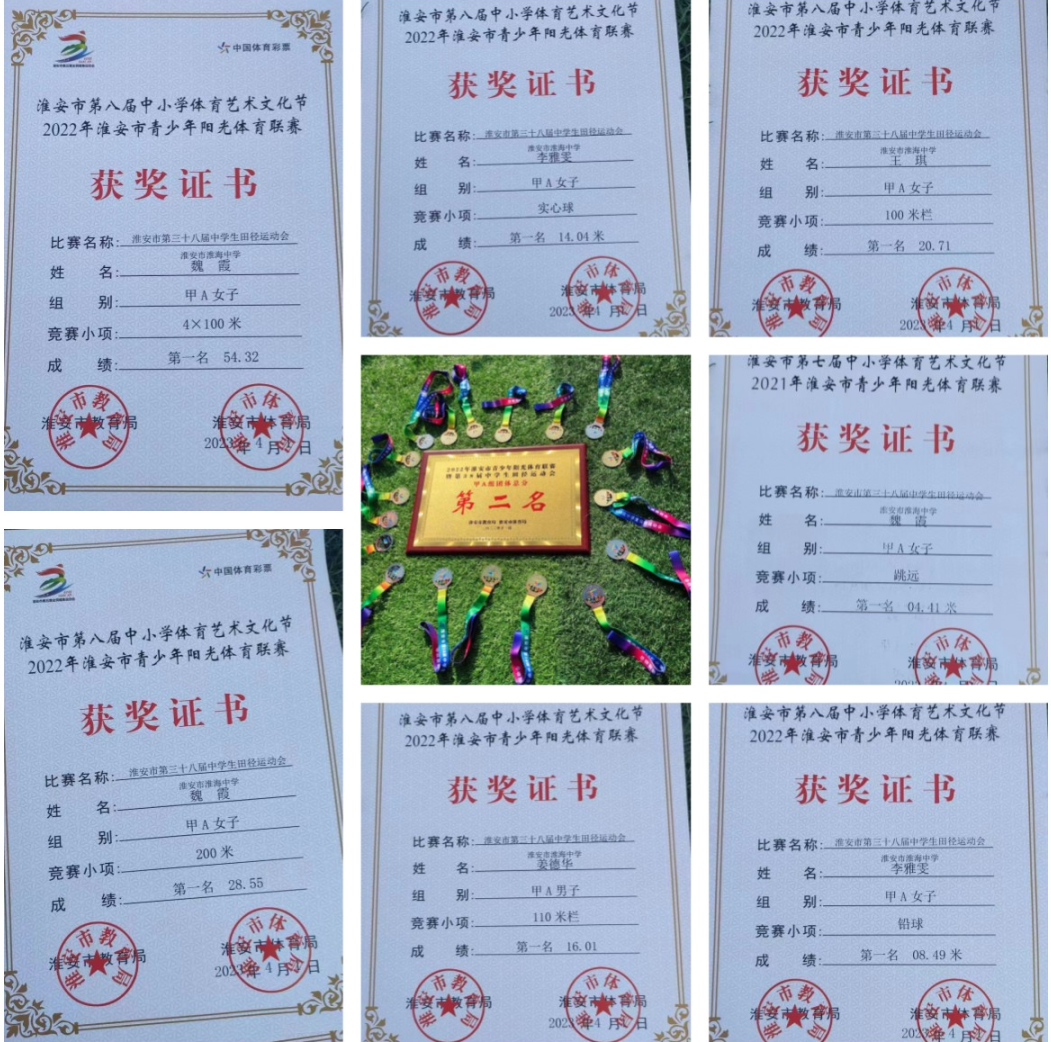 中国体育彩票
淮安市第八届中小学体育艺术文化节
2022年淮安市青少年阳光体育联赛
获奖证书
比赛名称:淮安市第三十八届中学生田径运动会
淮安市淮海中学
姓 名:魏 霞
组 别:甲A女子
竞赛小项:4×100米
成 绩:第一名 54.32
淮安市教育局
淮安市体育局
2023年4月 日
淮安市第八届中小学体育艺术文化节
2022年淮安市青少年阳光体育联赛
获奖证书
比赛名称:淮安市第三十八届中学生田径运动会
淮安市淮海中学
姓 名:李雅雯
组 别:甲A女子
竞赛小项:实心球
成 绩:第一名 14.04米
淮安市教育局
淮安市体育局
2023年4月 日
淮安市第八届中小学体育艺术文化节
2022年淮安市青少年阳光体育联赛
获奖证书
比赛名称:淮安市第三十八届中学生田径运动会
淮安市淮海中学
姓 名:王 琪
组 别:甲A女子
竞赛小项:100米栏
成 绩:第一名 20.71
淮安市教育局
淮安市体育局
2023年4月 日
2022年淮安市青少年阳光体育联赛
暨第38届中学生田径运动会
甲A组团体总分
第二名
淮安市第七届中小学体育艺术文化节
2021年淮安市青少年阳光体育联赛
获奖证书
比赛名称:淮安市第三十八届中学生田径运动会
淮安市淮海中学
姓 名:魏 霞
组 别:甲A女子
竞赛小项:跳远
成 绩:第一名 04.41米
淮安市教育局
淮安市体育局
中国体育彩票
淮安市第八届中小学体育艺术文化节
2022年淮安市青少年阳光体育联赛
获奖证书
比赛名称:淮安市第三十八届中学生田径运动会
淮安市淮海中学
姓 名:魏 霞
组 别:甲A女子
竞赛小项:200米
成 绩:第一名 28.55
淮安市教育局
淮安市体育局
2023年4月 日
淮安市第八届中小学体育艺术文化节
2022年淮安市青少年阳光体育联赛
获奖证书
比赛名称:淮安市第三十八届中学生田径运动会
淮安市淮海中学
姓 名:姜德华
组 别:甲A男子
竞赛小项:110米栏
成 绩:第一名 16.01
淮安市教育局
淮安市体育局
2023年4月 日
淮安市第八届中小学体育艺术文化节
2022年淮安市青少年阳光体育联赛
获奖证书
比赛名称:淮安市第三十八届中学生田径运动会
淮安市淮海中学
姓 名:李雅雯
组 别:甲A女子
竞赛小项:铅球
成 绩:第一名 08.49米
淮安市教育局
淮安市体育局
2023年4月 日